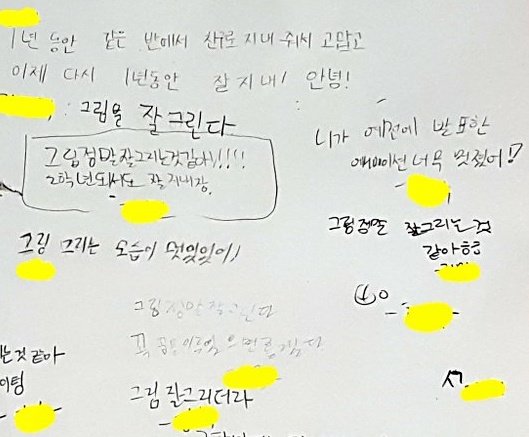 1년 동안 같은 반에서 친구로 지내 줘서 고맙고
이제 다시 1년동안 잘 지내! 안녕!
: 그림을 잘 그린다
그림 정말 잘그리는것같아!!!!!
2학년되서도 잘 지내장.
니가 예전에 발표한
애니메이션 너무 멋졌어!?
그림정말 잘그리는 것
같아ㅎㅎ
그림 그리는 모습이 멋있었어!
그림 정말 잘그린다
꼭
그림 잘그리더라
는것 같아
이팅